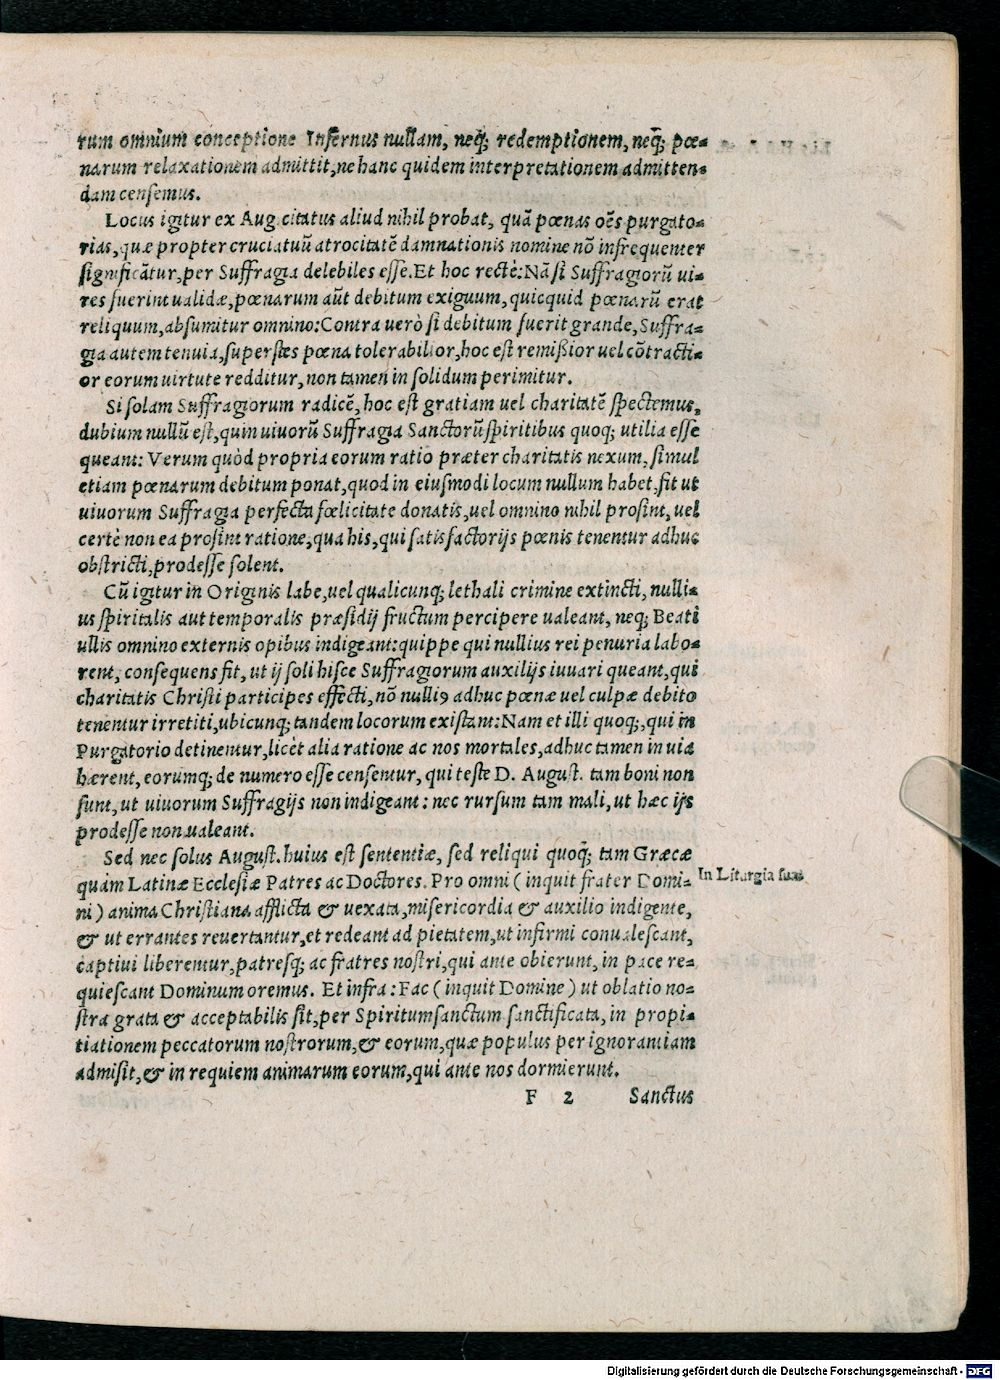 rum omnium conceptione Infernus nullam, neq́; redemptionem, neq́; pœ-
narum relaxationem admittit, ne hanc quidem interpretationem admitten-
dam censemus.
Locus igitur ex Aug. citatus aliud nihil probat, quā pœnas oēs purgato-
rias, quæ propter cruciatuū atrocitatē damnationis nomine nō infrequenter
significātur, per Suffragia delebiles esse. Et hoc rectè: Nā si Suffragiorū ui-
res fuerint ualidæ, pœnarum aūt debitum exiguum, quicquid pœnarū erat
reliquum, absumitur omnino: Contra uerò si debitum fuerit grande, Suffra-
gia autem tenuia, superstes pœna tolerabilior, hoc est remißior uel cōtracti-
or eorum uirtute redditur, non tamen in solidum perimitur.
Si solam Suffragiorum radicē, hoc est gratiam uel charitatē spectemus,
dubium nullū est, quin uiuorū Suffragia Sanctorū spiritibus quoq; utilia esse
queant: Verum quòd propria eorum ratio præter charitatis nexum, simul
etiam pœnarum debitum ponat, quod in eiusmodi locum nullum habet, fit ut
uiuorum Suffragia perfecta fœlicitate donatis, uel omnino nihil prosint, uel
certè non ea prosint ratione, qua his, qui satisfactorijs pœnis tenentur adhuc
obstricti, prodesse solent.
Cū igitur in Originis labe, uel qualicunq; lethali crimine extincti, nulli-
us spiritalis aut temporalis præsidij fructum percipere ualeant, neq; Beati
ullis omnino externis opibus indigeant: quippe qui nullius rei penuria labo-
rent, consequens fit, ut ij soli hisce Suffragiorum auxilijs iuuari queant, qui
charitatis Christi participes effecti, nō nulliꝰ adhuc pœnæ uel culpæ debito
tenentur irretiti, ubicunq; tandem locorum existant: Nam et illi quoq;, qui in
Purgatorio detinentur, licèt alia ratione ac nos mortales, adhuc tamen in uia
hærent, eorumq; de numero esse censentur, qui teste D. August. tam boni non
sunt, ut uiuorum Suffragijs non indigeant: nec rursum tam mali, ut hæc ijs
prodesse non ualeant.
Sed nec solus August. huius est sententiæ, sed reliqui quoq́; tam Græcæ
quàm Latinæ Ecclesiæ Patres ac Doctores. Pro omni ( inquit frater Domi- In Liturgia suas
ni ) anima Christiana afflicta & uexata, misericordia & auxilio indigente,
& ut errantes reuertantur, et redeant ad pietatem, ut infirmi conualescant,
captiui liberentur, patresq; ac fratres nostri, qui ante obierunt, in pace re-
quiescant Dominum oremus. Et infra: Fac ( inquit Domine ) ut oblatio no-
stra grata & acceptabilis sit, per Spiritumsanctum sanctificata, in propi-
tiationem peccatorum nostrorum, & eorum, quæ populus per ignorantiam
admisit, & in requiem animarum eorum, qui ante nos dormierunt.
F 2 Sanctus
Digitalisierung gefördert durch die Deutsche Forschungsgemeinschaft - DFG